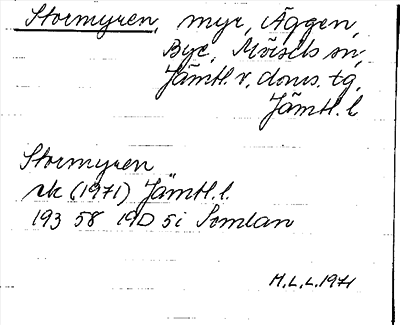 Stormyren, myr, Äggen,
Bye, Mörsils sn,
Jämtl. v. doms. tg,
Jämtl. l
Stormyren
rk (1971) Jämtl. l.
193 58 19D 5i Somlan
H.L.L. 1971